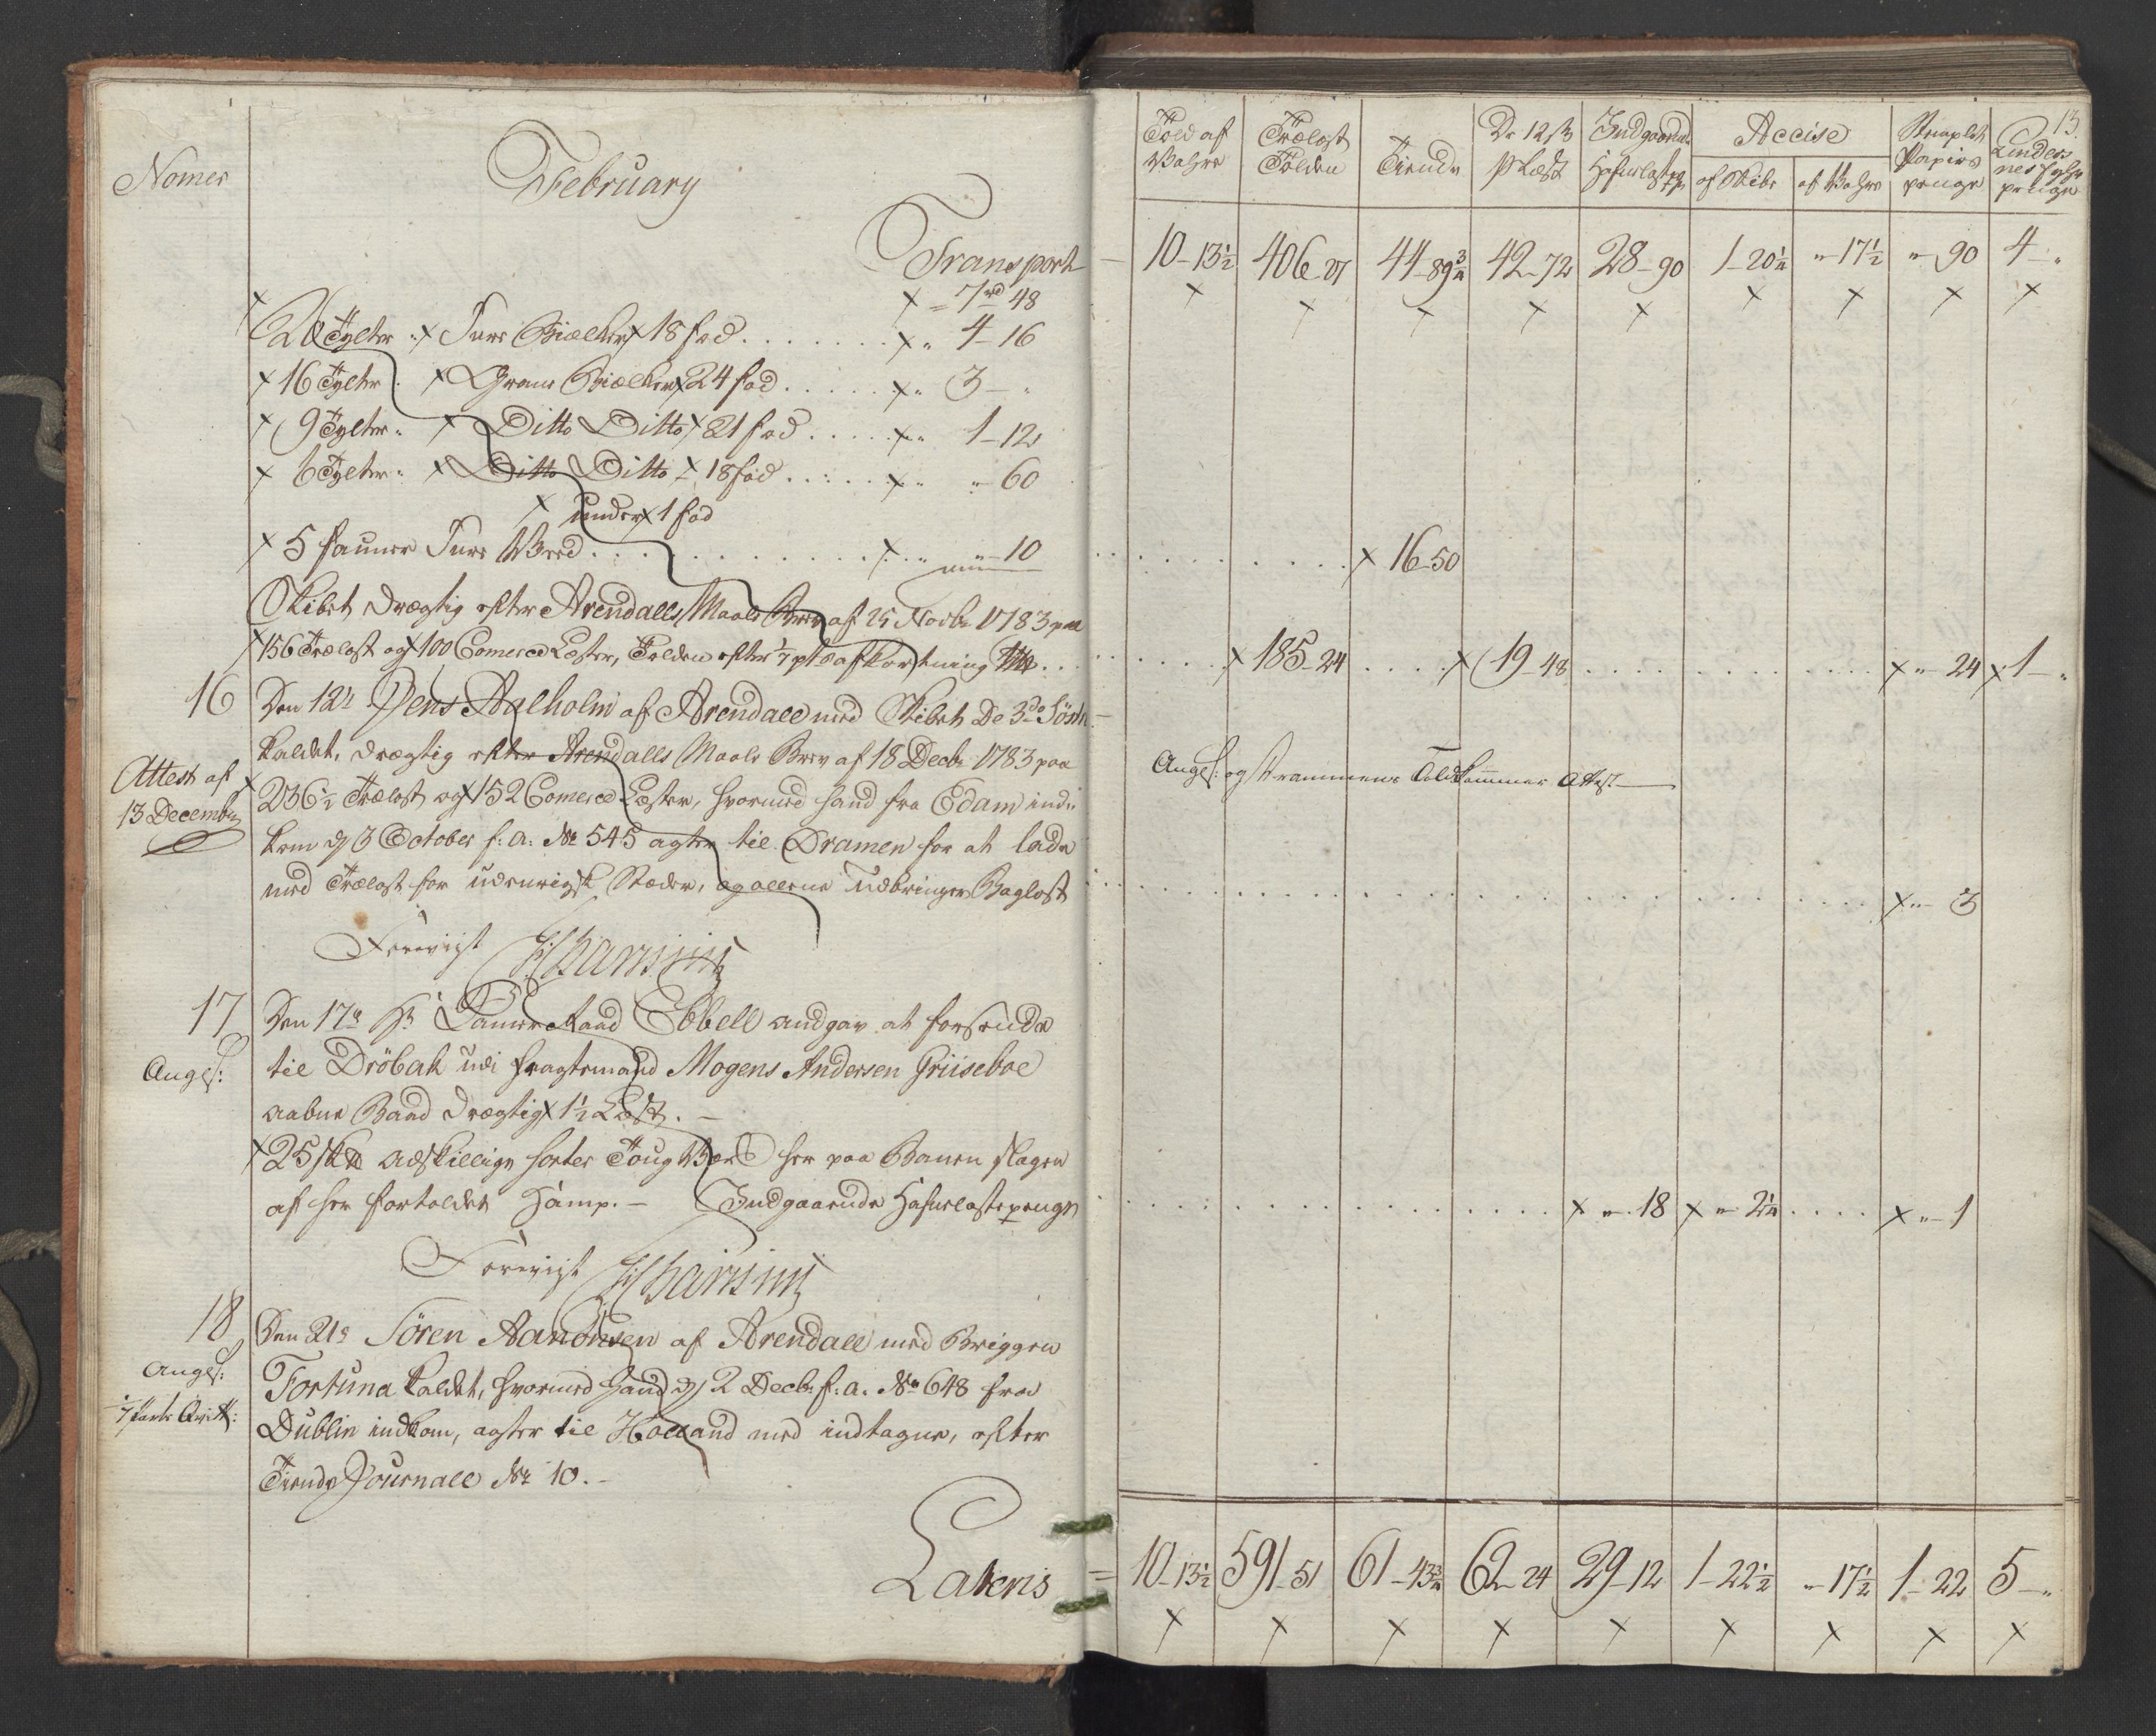 Nomer
February
Transport
7rd 48
20 Tylter Furu Bielker 18 fod 4-16
16 Tylter Grane Bielker 24 fod 3-
9 Tylter Ditto Ditto 21 fod 1-12
6 Tylter Ditto Ditto 18 fod 60
under 1 fod
5 faune Furu Veed 10
Skibet drægtig efter Arendalls Maale Brev af 25 Novbr 1783 paa
156 Trælast og 100 Comerce Læster, Tolden efter 1/7 pte afkortning
16
Den 12te Jens Aalholm af Arendall med Skibet De 3de Söstre
Attest af
13 December
kaldet, drægtig efter Arendalls Maale Brev af 18 Decbr 1783 paa
236½ Trælast og 152 Comerce Læster, hvormed hand fra Edam ind-
kom d 3 October f: a: No 545 agter til Dramen for at lade
med Trælast for udenrigsk Stæder, og allene udbringer Baglast
Forevigst
17
Angl:
Den 17de Hr Kamer Raad Ebbell andgav at forsende
til Dröbak udi fragtemand Mogens Andersen Griiseboe
aabne Baad drægtig 1½ Læst.
25 adskillige sorter Toug Værk her paa Banen slagen
af her fortoldet Hamp. - Indgaaende Hafnelastepenge
Forevigst
18
Angl:
1/7 Parts Qvitt:
Den 21de Sören Aanonsen af Arendall med Briggen
Fortuna kaldet, hvormed hand d 2 Decbr f: a. No 648 fra
Dublin indkom, agter til Holland med indtagne, efter
Tiende Journall No 10.-
Lateris
13.
Told af Vahre
Trælast Tolden
Tiende
De 12 s pr Læst
Indgaaende Hafnelastep
Accise
af Skibe
af Vahre
Stemplet Papirs penge
penge
10-13½ 406-27 44-89¾ 42-72 28-90 1-20¼ "-17½ "-90 4-"
16-50
185-24 19-48 "-24 1-"
Angl: og Strammens Told Kammer Attest
"-3
"-18 "-2¼ "-1
10-13½ 591-51 61-43¾ 62-24 29-12 1-22½ "-17½ 1-22 5-"